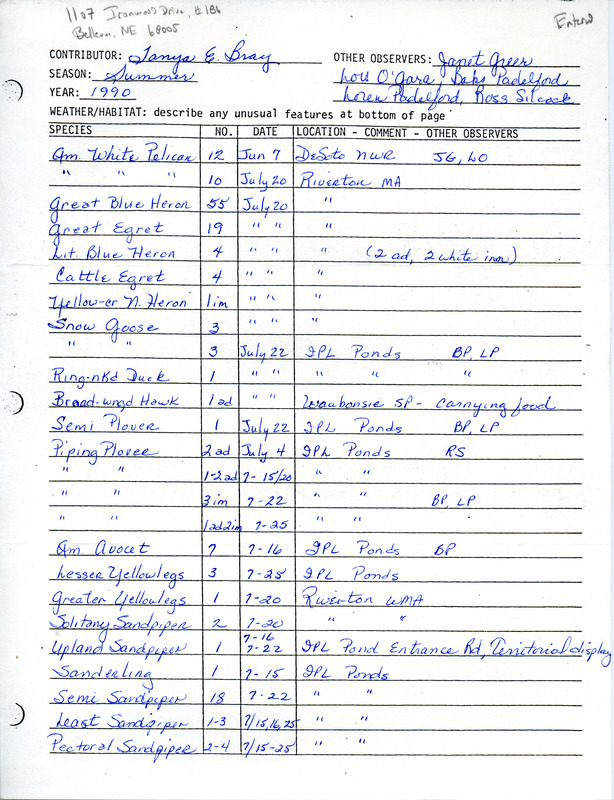 1107 Ironwood Drive, #186
Bellevue, NE 68005
Entered
CONTRIBUTOR: Tanya E. Bray OTHER OBSERVERS: Janet Greer
SEASON: Summer Lois O'Gara, Babs Padelford
YEAR: 1990 Loren Padelford, Ross Silcock
WEATHER/HABITAT: describe any unusual features at bottom of page
SPECIES NO. DATE LOCATION - COMMENT - OTHER OBSERVERS
Am. White Pelican 12 Jun 7 DeSoto NWR JG, LO
" " " 10 July 20 Riverton MA
Great Blue Heron 55 July 20 "
Great Egret 19 " " "
Lit. Blue Heron 4 " " " (2 ad, 2 white imm)
Cattle Egret 4 " " "
Yellow-cr N. Heron 1im " " "
Snow Goose 3 " " "
" " 3 July 22 IPL Ponds BP, LP
Ring-nkd Duck 1 " " " " "
Broad-wngd Hawk 1 ad Waubonsie SP - carrying food
Semi Plover 1 July 22 IPL Ponds BP, LP
Piping Plover 2 ad July 4 IPL Ponds RS
" " 1-2ad 7-15/20 " "
" " 3im 7-22 " " BP, LP
" " 1ad2im 7-25 " "
Am. Avocet 7 7-16 IPL Ponds BP
Lesser Yellowlegs 3 7-25 IPL Ponds
Greater Yellowlegs 1 7-20 Riverton WMA
Solitary Sandpiper 2 7-20 " "
7-16
Upland Sandpiper 1 7-22 IPL Pond Entrance Rd, Territorial display
Sanderling 1 7-15 IPL Ponds
Semi Sandpiper 18 7-22 " "
Least Sandpiper 1-3 7/15,16,25 " "
Pectoral Sandpiper 2-4 7/15-25 " "